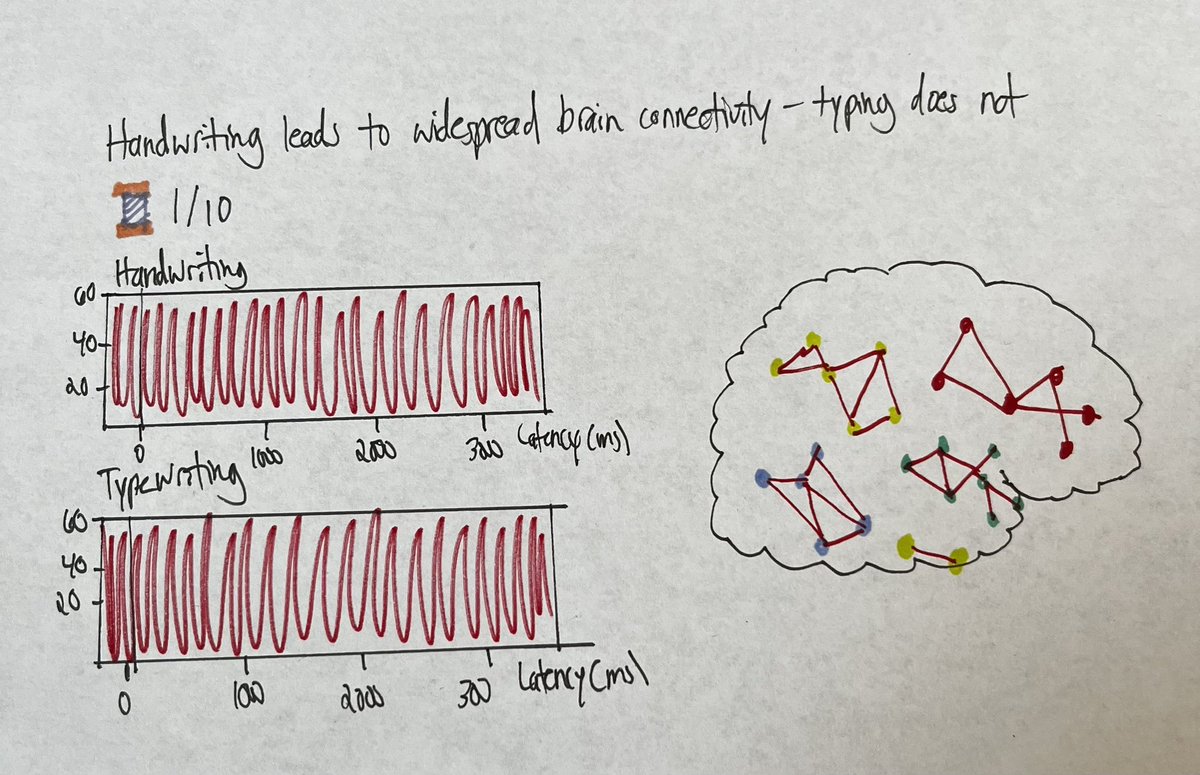 Handwriting leads to widespread brain connectivity - typing does not
1/10
Handwriting
60
40
20
0 1000 2000 3000 Latency (ms)
Typewriting
60
40
20
0 1000 2000 300 Latency (ms)